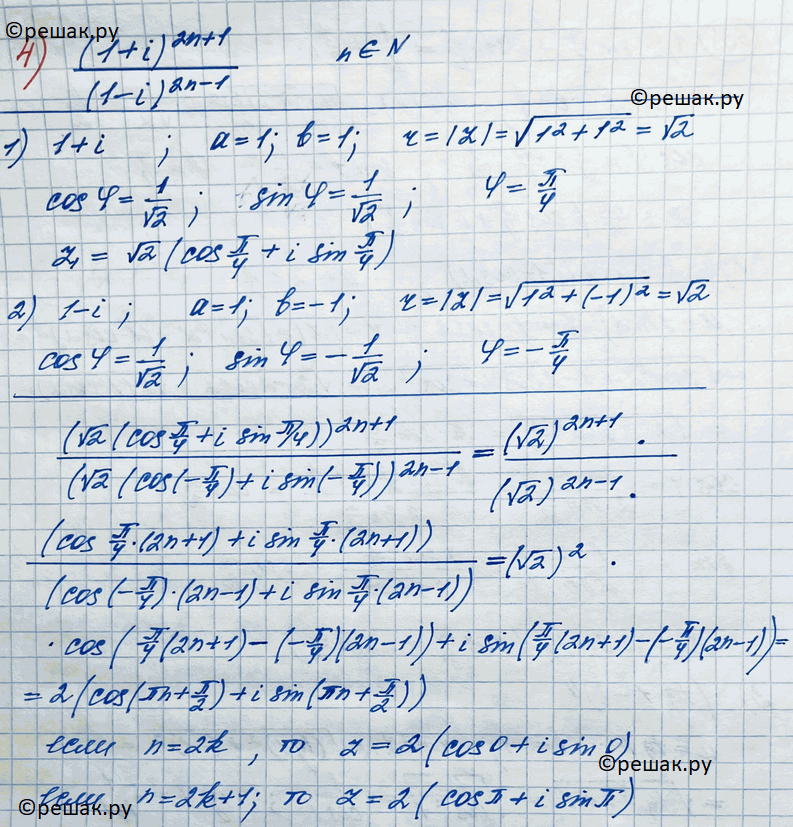 ©решак.ру
4) (1+i)^(2n+1) / (1-i)^(2n-1)      n∈N
©решак.ру
1) 1+i ; a=1; b=1; r=|z|=√(1²+1²)=√2
cos φ=1/√2 ; sin φ=1/√2 ; φ=π/4
z₁ = √2 (cos π/4 + i sin π/4)
2) 1-i ; a=1; b=-1; r=|z|=√(1²+(-1)²)=√2
cos φ=1/√2 ; sin φ=-1/√2 ; φ=-π/4
(√2 (cos π/4 + i sin π/4))^(2n+1) / (√2 (cos(-π/4)+i sin(-π/4))^(2n-1) = (√2)^(2n+1) · / (√2)^(2n-1) ·
(cos π/4·(2n+1) + i sin π/4·(2n+1)) / (cos(-π/4)·(2n-1)+i sin π/4·(2n-1)) = (√2)² ·
· cos(π/4(2n+1)-(-π/4)(2n-1))+i sin(π/4(2n+1)-(-π/4)(2n-1))=
= 2(cos(πn+π/2)+i sin(πn+π/2))
если n=2k , то z=2(cos0+i sin0)
©решак.ру
если n=2k+1; то z=2(cosπ+i sinπ)
©решак.ру